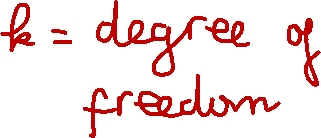 k = degree of
freedom